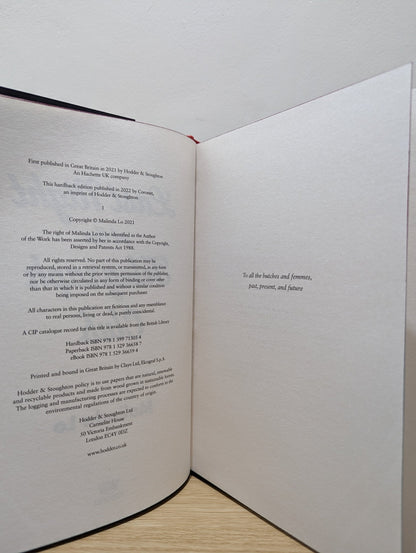 First published in Great Britain in 2021 by Hodder & Stoughton
An Hachette UK company
This hardback edition published in 2022 by Coronet,
an imprint of Hodder & Stoughton
1
Copyright © Malinda Lo 2021
The right of Malinda Lo to be identified as the Author
of the Work has been asserted by her in accordance with the Copyright,
Designs and Patents Act 1988.
All rights reserved. No part of this publication may be
reproduced, stored in a retrieval system, or transmitted, in any form
or by any means without the prior written permission of the publisher,
nor be otherwise circulated in any form of binding or cover other
than that in which it is published and without a similar condition
being imposed on the subsequent purchaser.
All characters in this publication are fictitious and any resemblance
to real persons, living or dead, is purely coincidental.
A CIP catalogue record for this title is available from the British Library
Hardback ISBN 978 1 399 71305 4
Paperback ISBN 978 1 529 36658 7
eBook ISBN 978 1 529 36659 4
Printed and bound in Great Britain by Clays Ltd, Elcograf S.p.A.
Hodder & Stoughton policy is to use papers that are natural, renewable
and recyclable products and made from wood grown in sustainable forests.
The logging and manufacturing processes are expected to conform to the
environmental regulations of the country of origin.
Hodder & Stoughton Ltd
Carmelite House
50 Victoria Embankment
London EC4Y 0DZ
www.hodder.co.uk
To all the butches and femmes,
past, present, and future